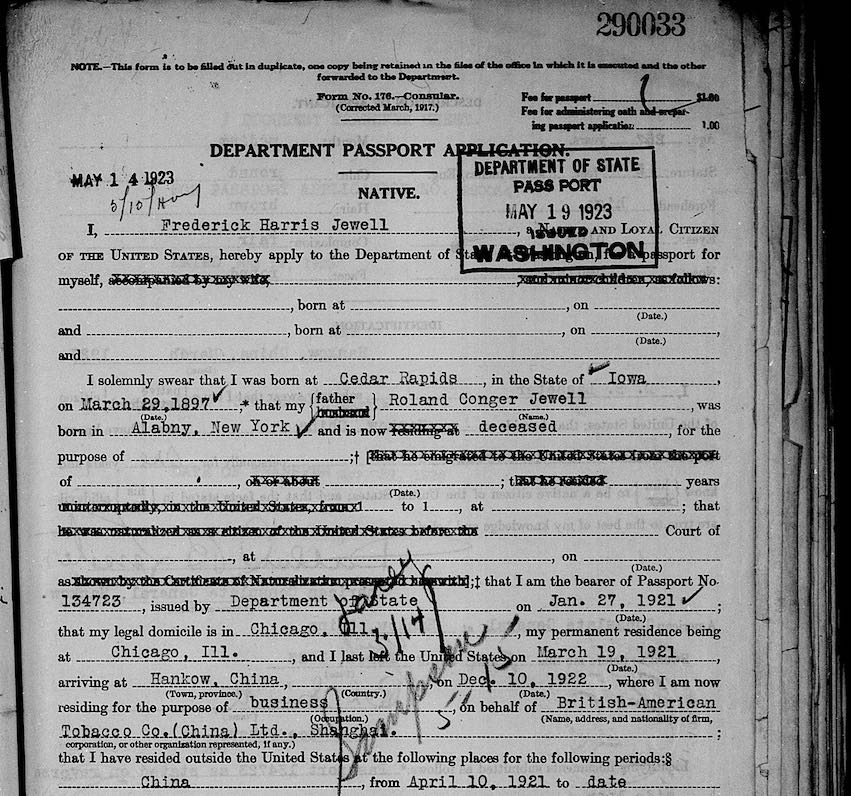 290033
NOTE.—This form is to be filled out in duplicate, one copy being retained in the files of the office in which it is executed and the other
forwarded to the Department.
Form No. 176.—Consular.
(Corrected March, 1917.)
Fee for passport $1.00
Fee for administering oath and prepar-
ing passport application 1.00
DEPARTMENT PASSPORT APPLICATION.
DEPARTMENT OF STATE
PASSPORT
MAY 19 1923
ISSUED
WASHINGTON
MAY 14 1923
NATIVE.
I, Frederick Harris Jewell, a NATIVE AND LOYAL CITIZEN
OF THE UNITED STATES, hereby apply to the Department of State at Washington, for a passport for
myself, accompanied by my wife, and minor children, as follows:
, born at , on
(Date.)
and , born at , on
(Date.)
and
I solemnly swear that I was born at Cedar Rapids, in the State of Iowa,
on March 29,1897;* that my {father husband} Roland Conger Jewell, was
(Date.) (Name.)
born in Alabny, New York and is now residing at deceased, for the
purpose of ;† [that he emigrated to the United States from the port
of , on or about ; that he resided years
(Date.)
uninterruptedly, in the United States, from 1 to 1 , at ; that
he was naturalized as a citizen of the United States before the Court of
, at , on
(Date.)
as shown by the Certificate of Naturalization presented herewith];‡ that I am the bearer of Passport No.
134723, issued by Department of State on Jan. 27, 1921;
(Date.)
that my legal domicile is in Chicago, Ill., my permanent residence being
at Chicago, Ill., and I last left the United States on March 19, 1921
(Date.)
arriving at Hankow, China, on Dec. 10, 1922, where I am now
(Town, province.) (Country.) (Date.)
residing for the purpose of business, on behalf of British-American
(Occupation.) (Name, address, and nationality of firm,
Tobacco Co.(China) Ltd., Shanghai. ;
corporation, or other organization represented, if any.)
that I have resided outside the United States at the following places for the following periods:§
China, from April 10, 1921 to date